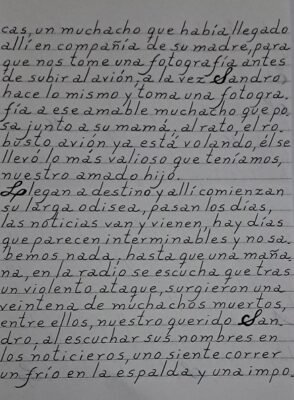 cas, un muchacho que había llegado
allí en compañía de su madre, para
que nos tome una fotografía antes
de subir al avión, a la vez Sandro
hace lo mismo y toma una fotogra.
fía a ese amable muchacho que po
sa junto a su mamá. al rato, el ro.
busto avión ya está volando, él se
llevó lo más valioso que teníamos,
nuestro amado hijo.
Llegan a destino y allí comienzan
su larga odisea, pasan los días,
las noticias van y vienen, hay días
que parecen interminables y no sa.
bemos nada, hasta que una maña
na, en la radio se escucha que tras
un violento ataque, surgieron una
veintena de muchachos muertos,
entre ellos, nuestro querido San.
dro, al escuchar sus nombres en
los noticieros, uno siente correr
un frío en la espalda y una impo.